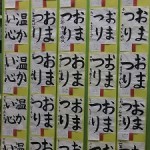 おま
つり
おま
つり
おま
つり
おま
つり
温か
い心
おま
つり
おま
つり
おま
つり
おま
つり
温か
い心
おま
つり
おま
つり
おま
つり
おま
つり
温か
い心